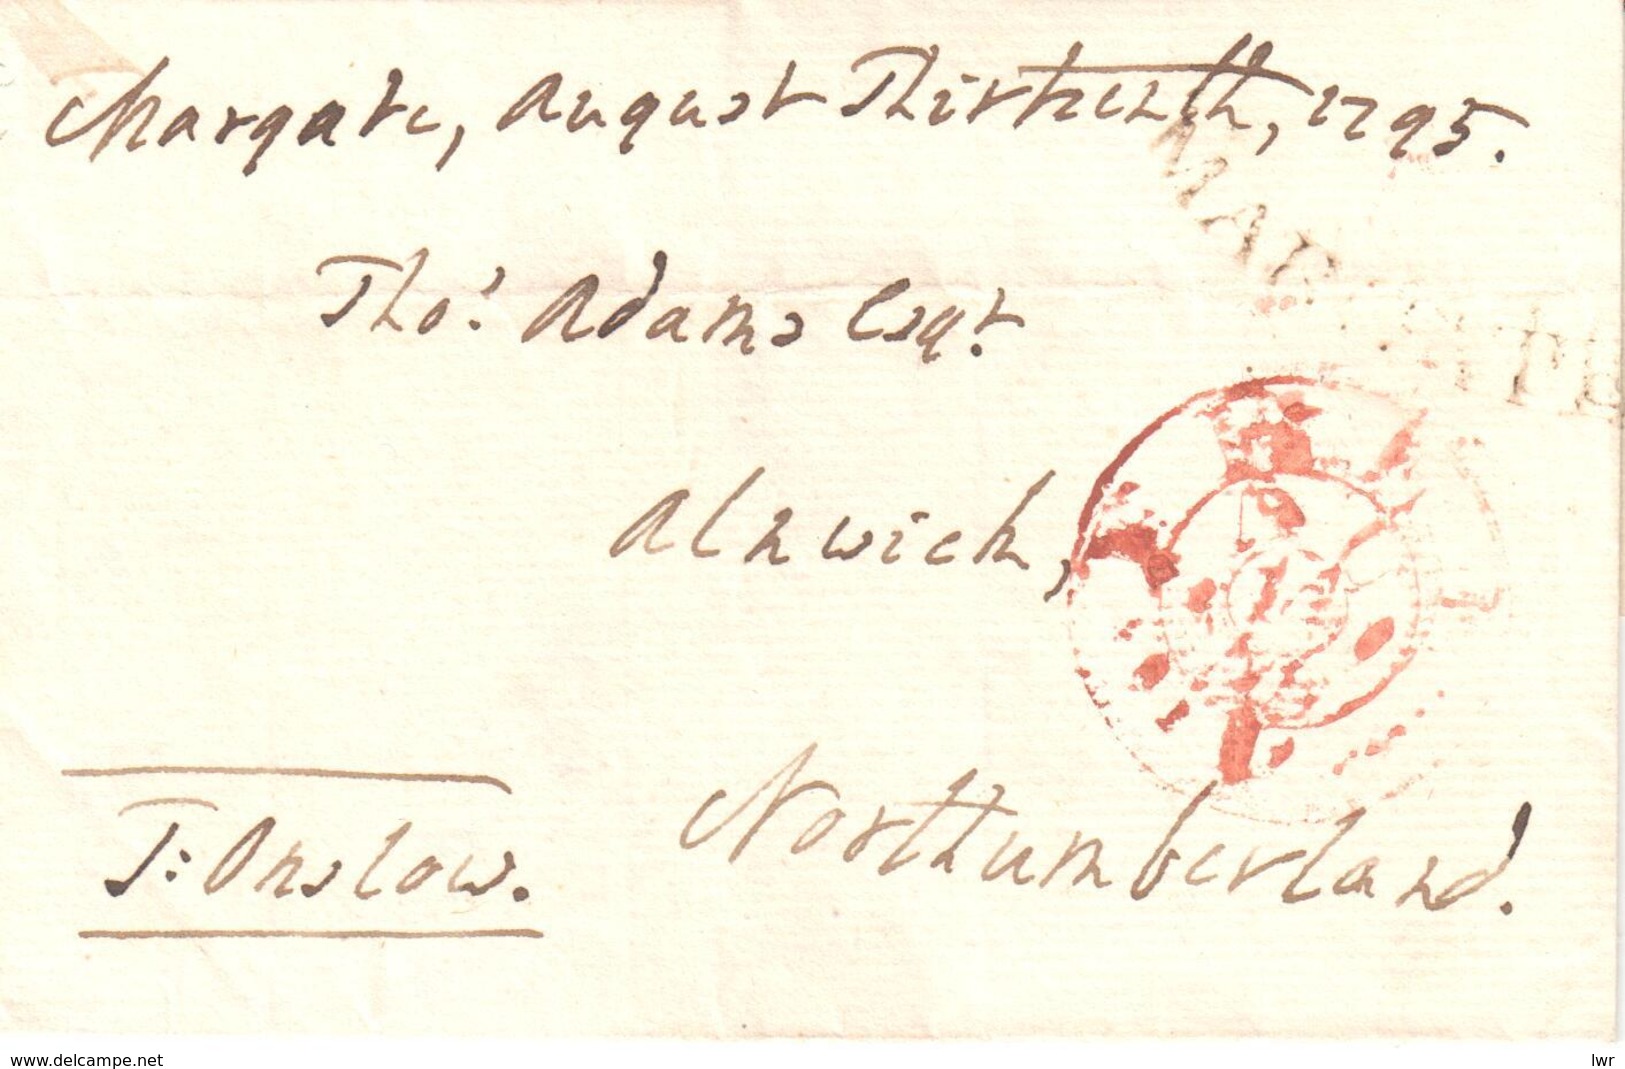 Margate, August Thirtieth, 1795.
MARGATE
Thos. Adams Esqr.
Alnwick,
Northumberland.
T: Onslow.
www.delcampe.net
lwr